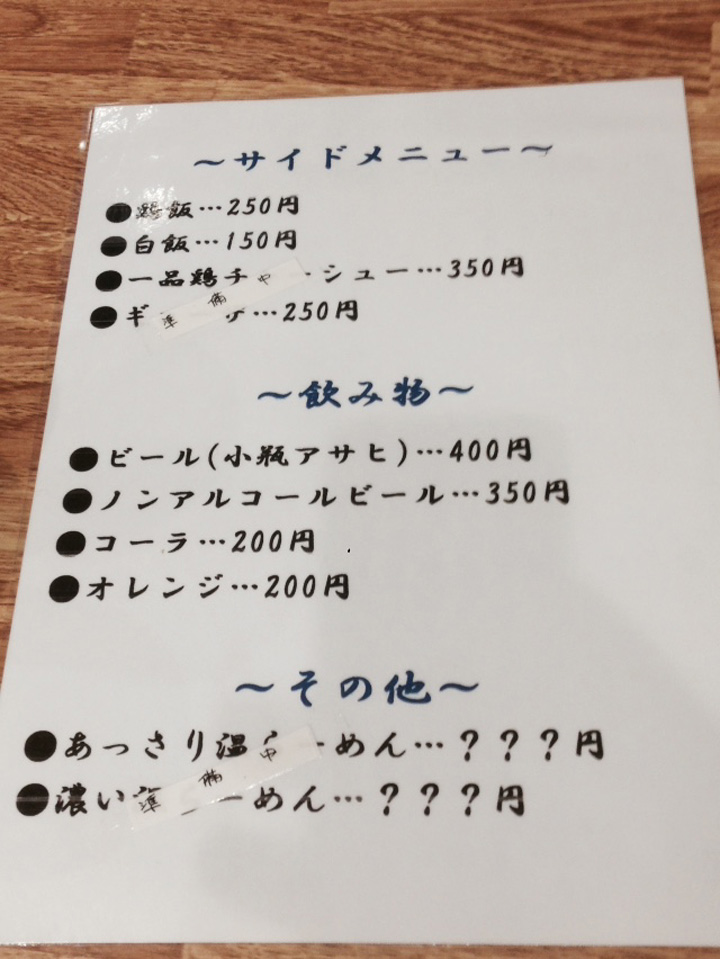 ～サイドメニュー～
●鶏飯…250円
●白飯…150円
●一品鶏チ ーシュー…350円
●ギ ザ…250円
準備中
～飲み物～
●ビール(小瓶アサヒ)…400円
●ノンアルコールビール…350円
●コーラ…200円
●オレンジ…200円
～その他～
●あっさり温 ーめん…？？？円
●濃い ーめん…？？？円
準備中